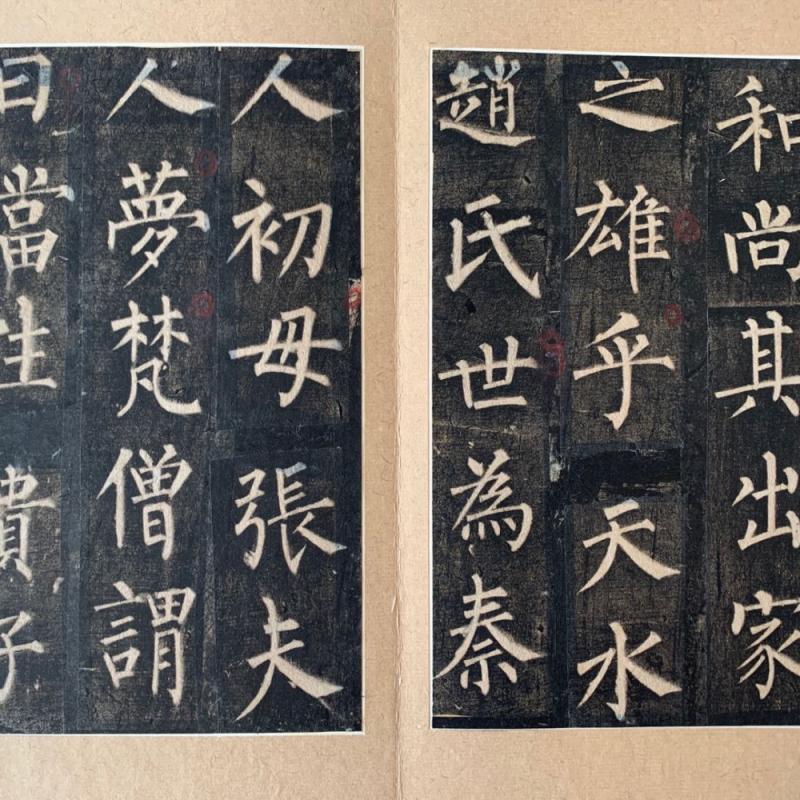 和尚其出家
之雄乎天水
趙氏世為秦
人初母張夫
人夢梵僧謂
曰當生貴子